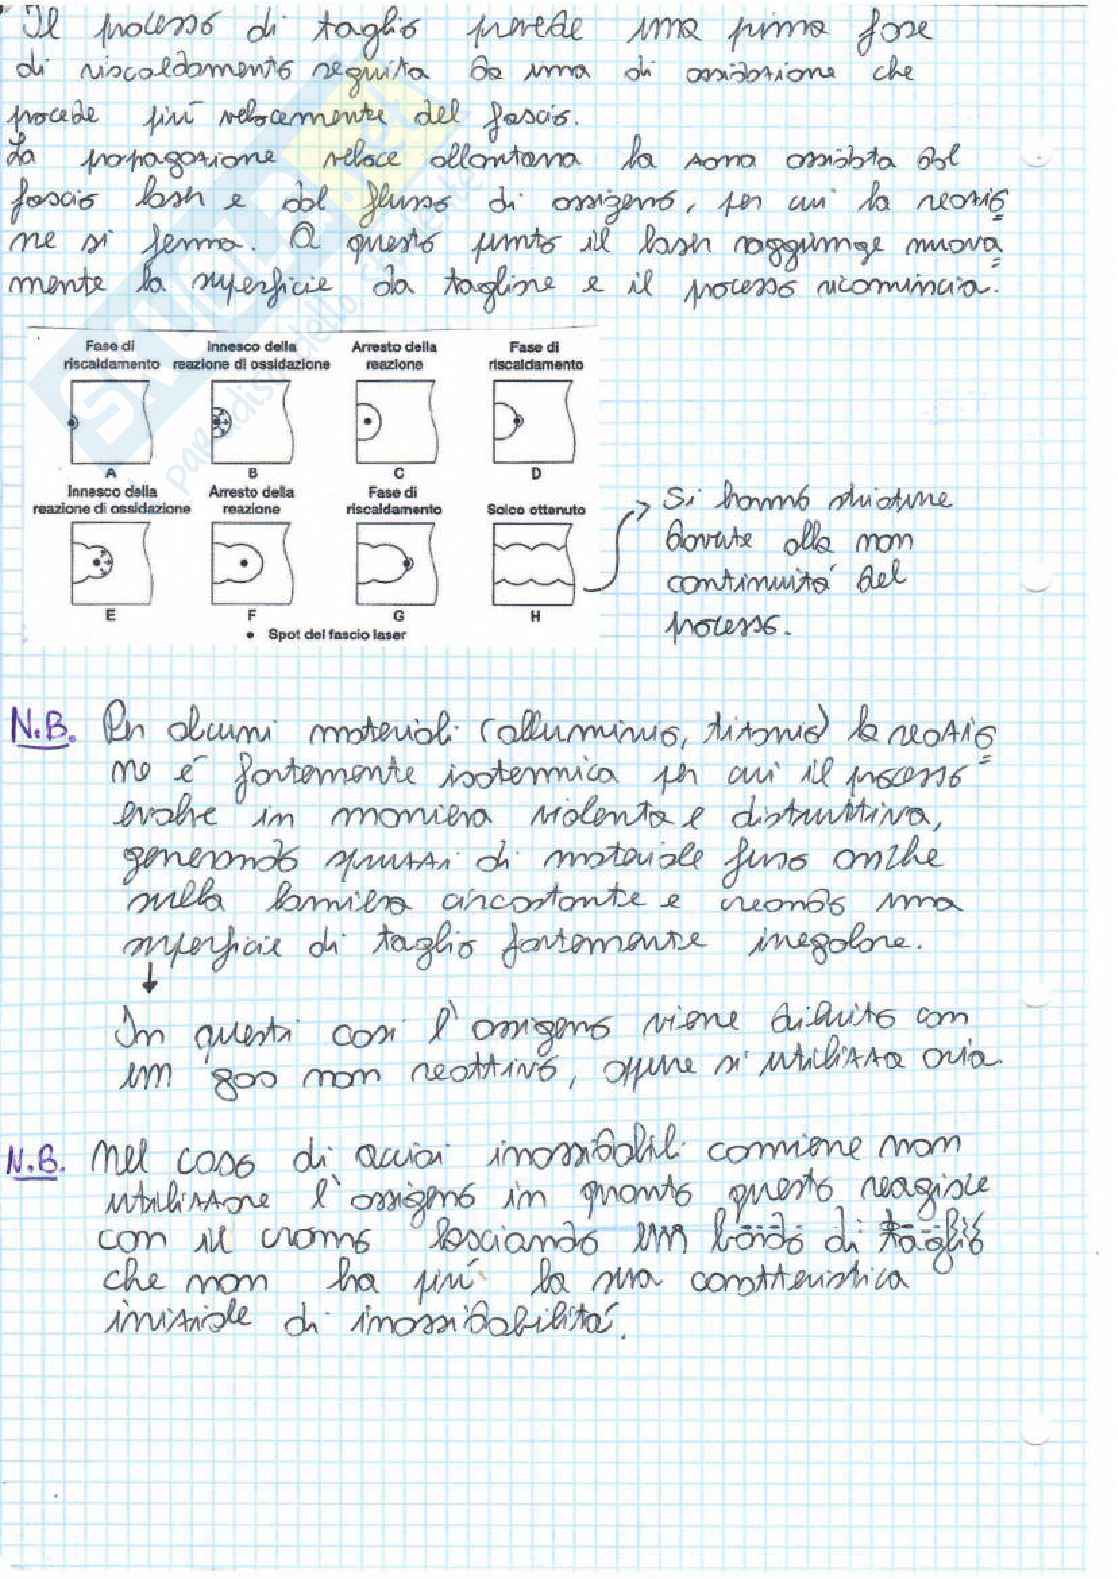 Il processo di taglio prevede una prima fase
di riscaldamento seguita da una di ossidazione che
procede più velocemente del fascio.
La propagazione veloce allontana la zona ossidata dal
fascio laser e dal flusso di ossigeno, per cui la reazio
ne si ferma. A questo punto il laser raggiunge nuova
mente la superficie da tagliare e il processo ricomincia.
Fase di riscaldamento
A
Innesco della reazione di ossidazione
B
Arresto della reazione
C
Fase di riscaldamento
D
Innesco della reazione di ossidazione
E
Arresto della reazione
F
Fase di riscaldamento
G
Solco ottenuto
H
• Spot del fascio laser
Si hanno striature
dovute alla non
continuità del
processo.
N.B. Per alcuni materiali (alluminio, titanio) la reazio
ne è fortemente isotermica per cui il processo
evolve in maniera violenta e distruttiva,
generando spruzzi di materiale fuso anche
sulla lamiera circostante e creando una
superficie di taglio fortemente irregolare.
In questi casi l'ossigeno viene diluito con
un gas non reattivo, oppure si utilizza aria.
N.B. Nel caso di acciai inossidabili conviene non
utilizzare l'ossigeno in quanto questo reagisce
con il cromo lasciando un bordo di taglio
che non ha più la sua caratteristica
iniziale di inossidabilità.
SKUOLA.net